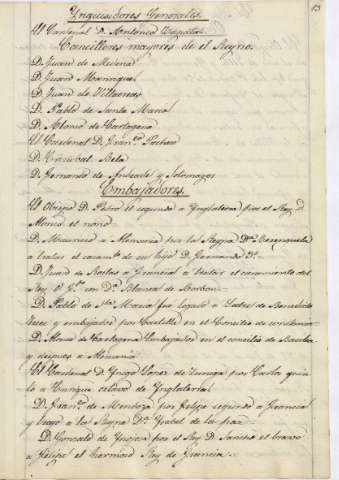 13
Ynquisidores Generales.
El Cardenal de Mendoza
Chancilleres mayores de el Reyno.
D. Juan de Medina
D. Juan Manrrique
D. Juan de Villacreces
D. Pablo de Santa Maria
D. Alonso de Cartagena
El Cardenal D. Fran.co Pacheco
D. Christobal Bela
D. Fernando de Andrade y Sotomayor
Embajadores.
El Obispo D. Pedro el segundo a Ynglaterra por el Rey D.
Alonso el nono
D. Mauricio a Alemania por la Reyna D.a Berenguela
a tratar el casam.to de su hijo D. Fernando 3.o
D. Juan de Roelas a Francia a tratar el casamiento del
Rey D. P.o con D.a Blanca de Borbon
D. Pablo de S.ta Maria fue legado a Latere de Benedicto
trece y embajador por Castilla en el Concilio de
D. Alonso de Cartagena Embajador en el concilio de Basilea
y despues a Alemania
El Cardenal D. Yñigo Lopez de Zuñiga por Carlos quin
to a Enrique octavo de Ynglaterra
D. Fran.co de Mendoza por Felipe segundo a Francia
y trajo a la Reyna D.a Ysabel de la paz
D. Gonzalo de Ynojosa por el Rey D. Sancho el bravo
a Felipe el hermoso Rey de Francia